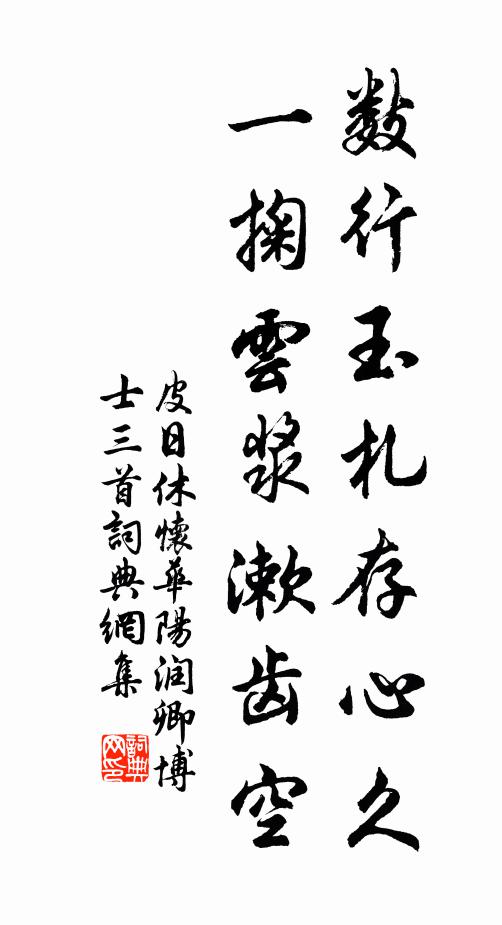 数行玉札存心久
一掬雲漿漱齿空
皮日休懷華陽润卿博
士三首詞典網集
詞典
网印